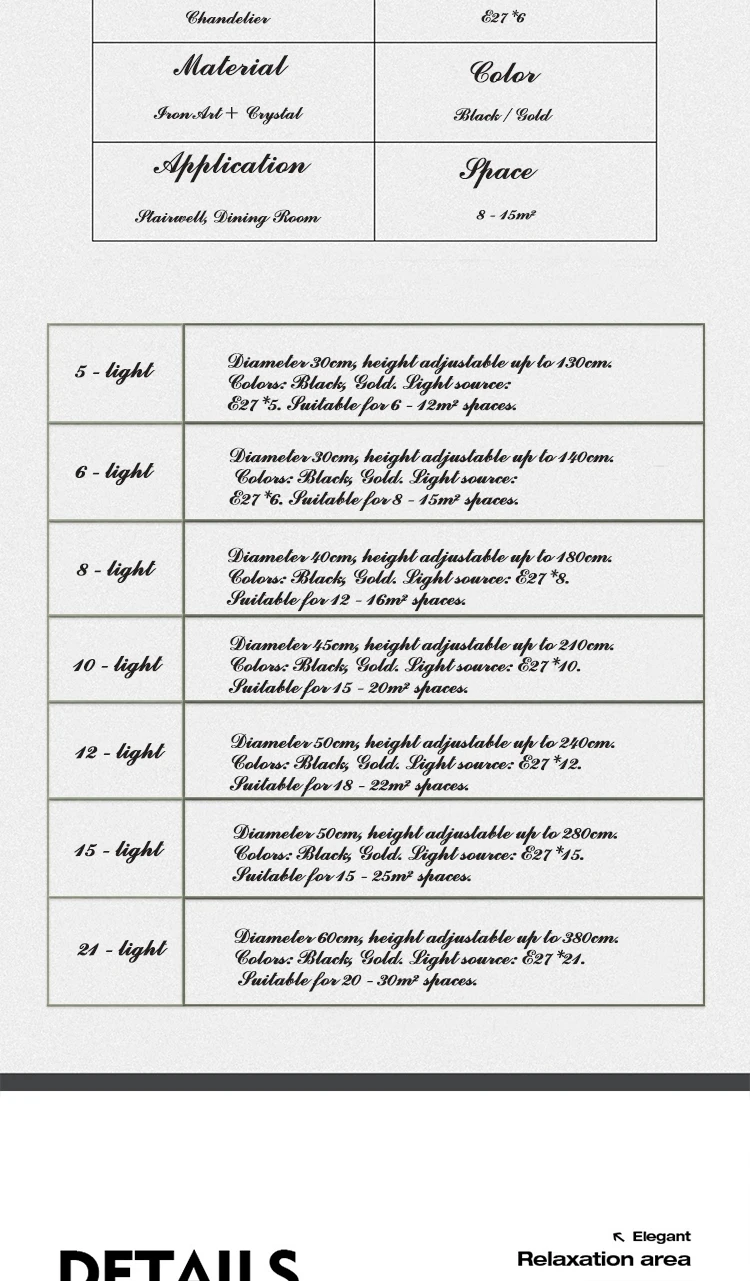 Chandelier
E27*6
Material
Color
Iron Art + Crystal
Black / Gold
Application
Space
Stairwell, Dining Room
8 - 15m²
5 - light
Diameter 30cm, height adjustable up to 130cm.
Colors: Black, Gold. Light source:
E27*5. Suitable for 6 - 12m² spaces.
6 - light
Diameter 30cm, height adjustable up to 140cm.
Colors: Black, Gold. Light source:
E27*6. Suitable for 8 - 15m² spaces.
8 - light
Diameter 40cm, height adjustable up to 180cm.
Colors: Black, Gold. Light source: E27*8.
Suitable for 12 - 16m² spaces.
10 - light
Diameter 45cm, height adjustable up to 210cm.
Colors: Black, Gold. Light source: E27*10.
Suitable for 15 - 20m² spaces.
12 - light
Diameter 50cm, height adjustable up to 240cm.
Colors: Black, Gold. Light source: E27*12.
Suitable for 18 - 22m² spaces.
15 - light
Diameter 50cm, height adjustable up to 280cm.
Colors: Black, Gold. Light source: E27*15.
Suitable for 15 - 25m² spaces.
21 - light
Diameter 60cm, height adjustable up to 380cm.
Colors: Black, Gold. Light source: E27*21.
Suitable for 20 - 30m² spaces.
Elegant
Relaxation area
DETAILS